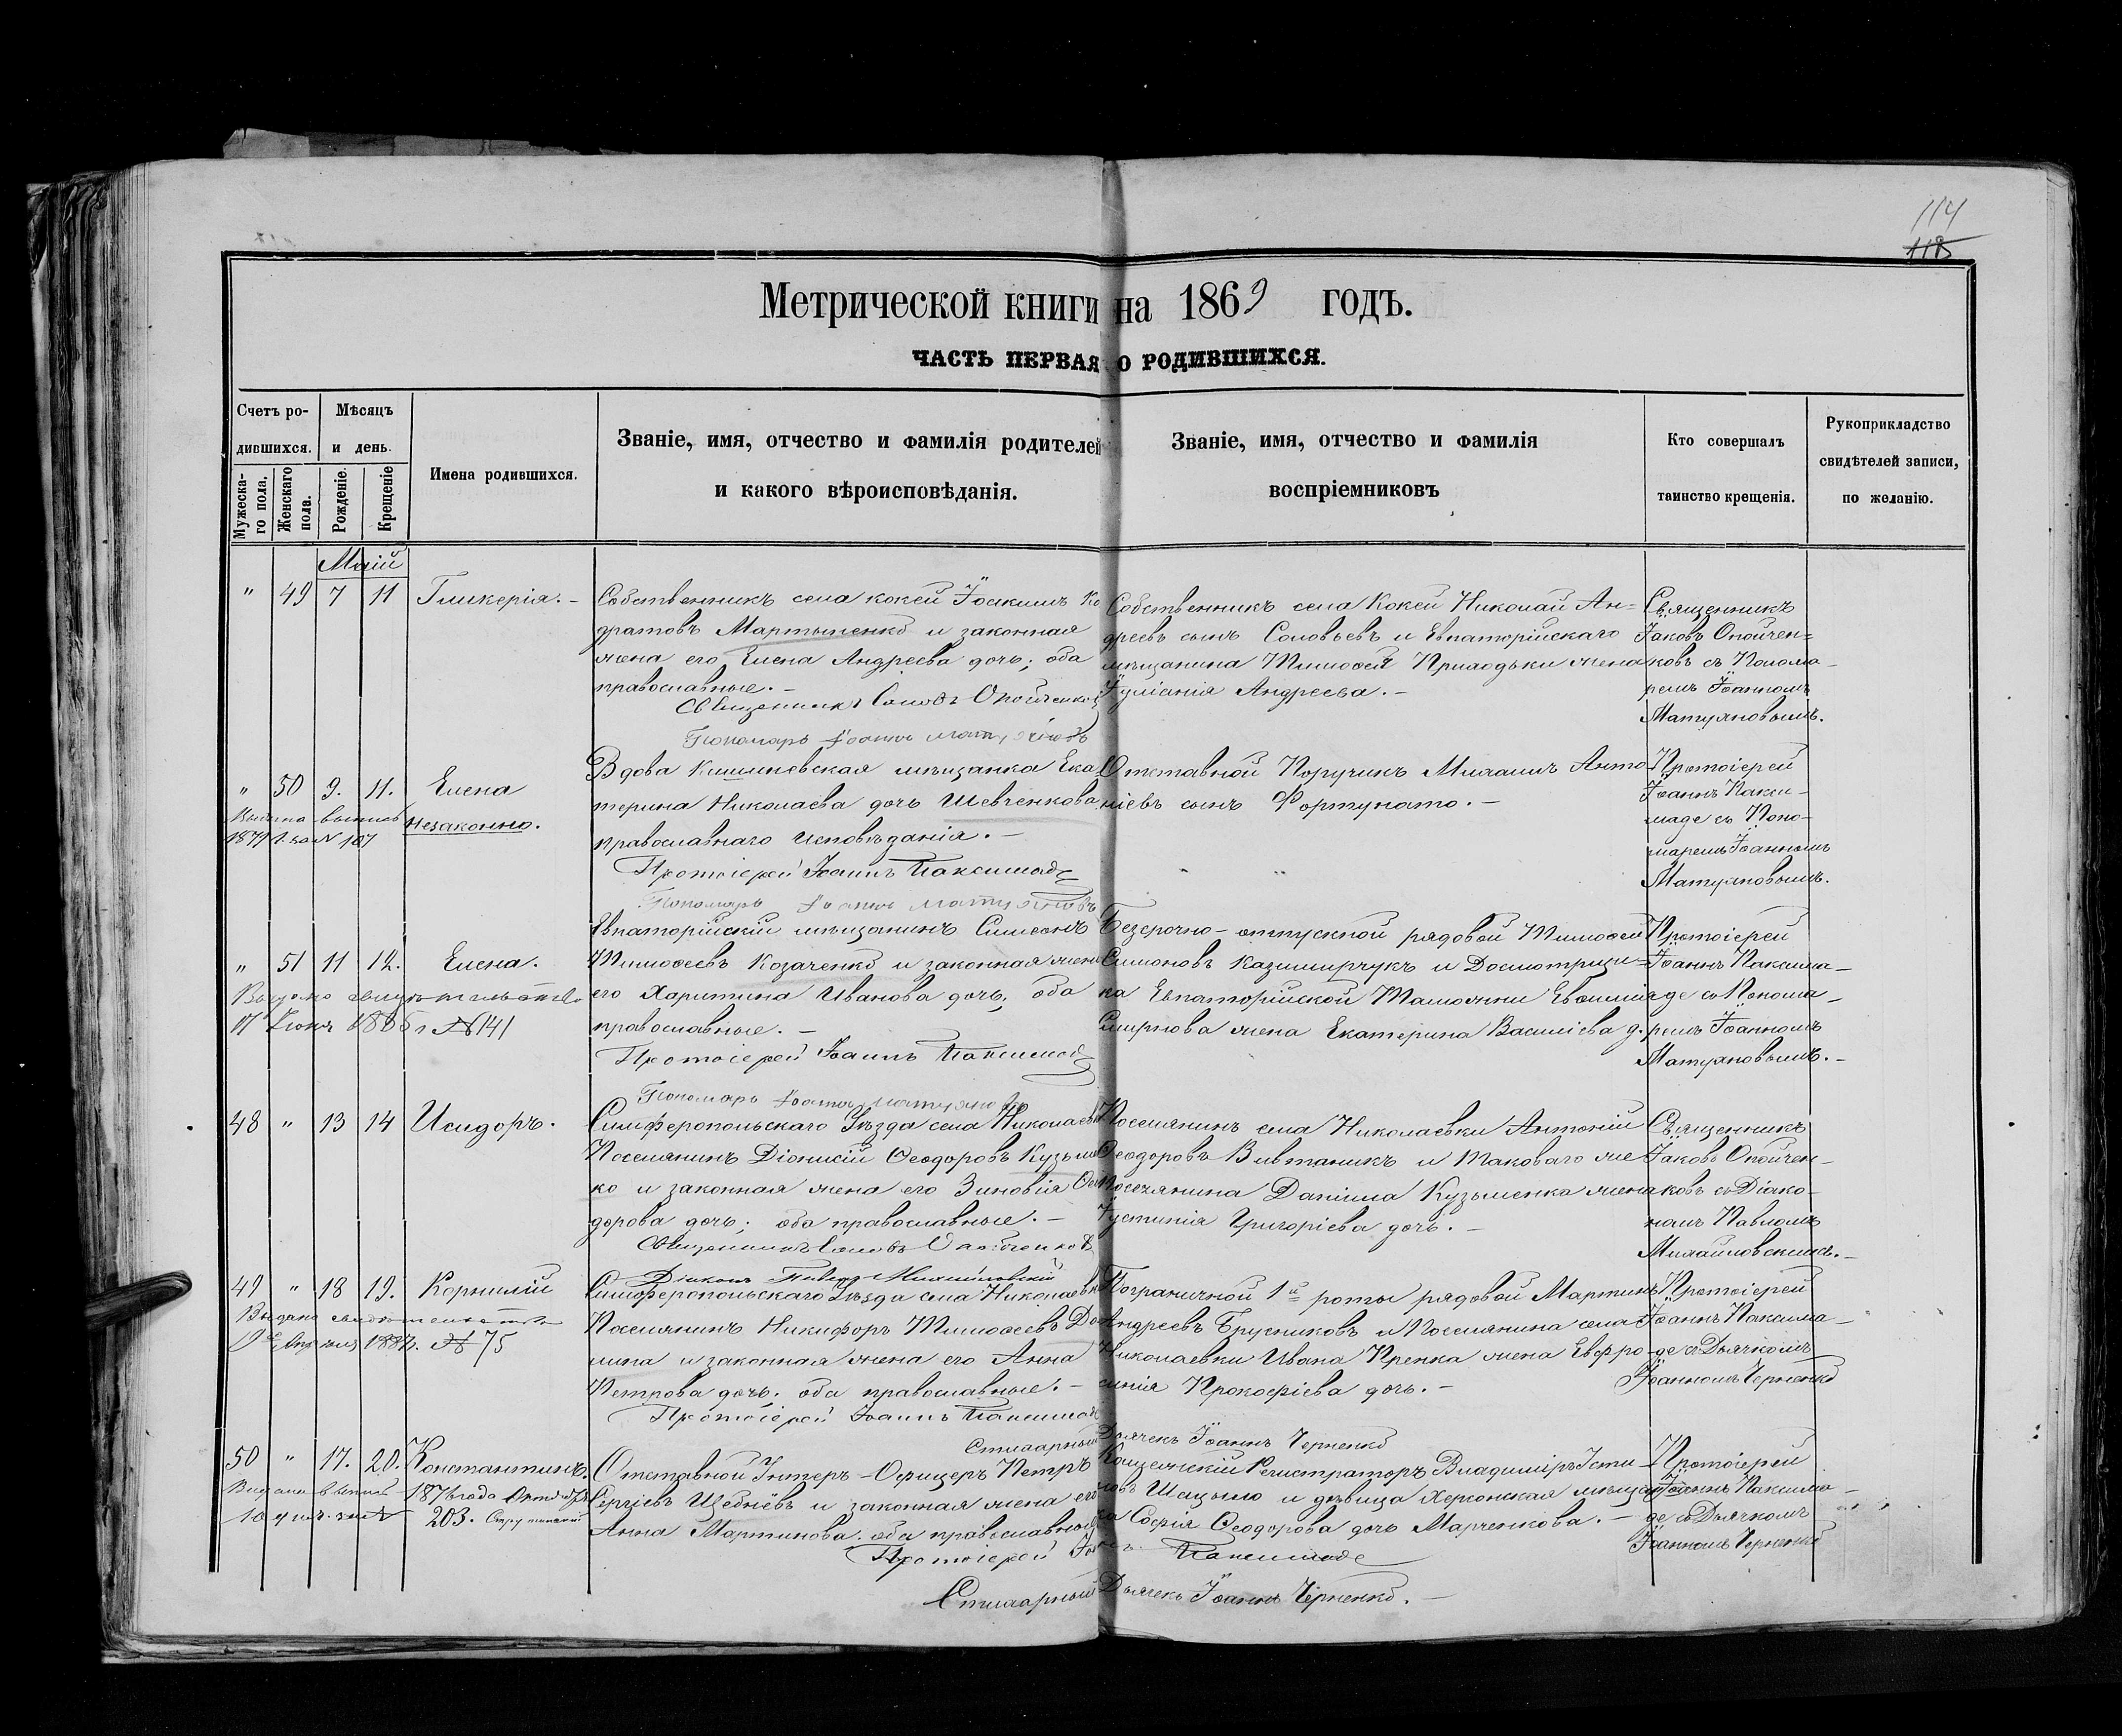 114
118
Метрической книги на 1869 годъ.
ЧАСТЬ ПЕРВАЯ О РОДИВШИХСЯ.
Счетъ родившихся.
Мужескаго пола.
Женскаго пола.
Мѣсяцъ и день.
Рожденіе.
Крещеніе
Имена родившихся.
Званіе, имя, отчество и фамилія родителей
и какого вѣроисповѣданія.
Званіе, имя, отчество и фамилія
воспріемниковъ
Кто совершалъ
таинство крещенія.
Рукоприкладство
свидѣтелей записи,
по желанію.
Маій
" 49 7 11 Гликерія.-
Собственникъ села Кокей Іоакимъ Ко
дратовъ Мартыненко и законная
жена его Елена Андреева дочь; оба
православные.-
Священникъ Іаковъ Опойченковъ
Пономарь Іоаннъ Матуяновъ
Собственникъ села Кокей Николай Ан=
дреевъ сынъ Соловьевъ и Евпаторійскаго
мѣщанина Тимофея Приходьки жена
Іуліанія Андреева.-
Священникъ
Іаковъ Опойчен=
ковъ съ Понома-
ремъ Іоанномъ
Матуяновымъ.
" 50 9. 11. Елена
незаконно.
Выдана выпись
187 г. за N 187
Вдова Кишиневская мѣщанка Ека
терина Николаева дочь Шевченкова
православнаго исповѣданія.-
Протоіерей Іоаннъ Паксимаде
Пономарь Іоаннъ Матуяновъ
Отставной Поручикъ Михаилъ Анто
ніевъ сынъ Фортунато.-
Протоіерей
Іоаннъ Пакси-
маде съ Поно-
маремъ Іоанномъ
Матуяновымъ.
" 51 11 12. Елена.
Выдано свидѣтельство
17 Іюня 1886 г № 141
Евпаторійскій мѣщанинъ Симеонъ
Тимофеевъ Козаченко и законная жена
его Харитина Иванова дочь; оба
православные.-
Протоіерей Іоаннъ Паксимаде
Пономарь Іоаннъ Матуяновъ
Безсрочно-отпускной рядовой Тимофей
Симоновъ Казимирчукъ и Досмотрщи=
ка Евпаторійской Таможни Евфимія
Смирнова жена Екатерина Василіева д.
Протоіерей
Іоаннъ Паксима-
де съ Понома-
ремъ Іоанномъ
Матуяновымъ.-
48 " 13 14 Исидоръ.
Симферопольскаго Уѣзда села Николаевки
Поселянинъ Діонисій Ѳеодоровъ Кузьмен
ко и законная жена его Зиновія Ѳео
дорова дочь; оба православные.-
Священникъ Іаковъ Опойченковъ
Діаконъ Павелъ Михайловскій
Поселянинъ села Николаевки Антоній
Ѳеодоровъ и таковаго же
Поселянина Даніила Кузьменка жена
Іустинія Григоріева дочь.-
Священникъ
Іаковъ Опойчен-
ковъ съ Діако-
номъ Павломъ
Михайловскимъ.-
49 " 18 19. Корнилій
Выдано свидѣтельство
Апрѣля 1887 г. № 75
Симферопольскаго Уѣзда села Николаевки
Поселянинъ Никифоръ Тимофеевъ До
лина и законная жена его Анна
Петрова дочь. оба православные.-
Протоіерей Іоаннъ Паксимаде
Стихарный Дьячекъ Іоаннъ Черненко
Пограничной 1й роты рядовой Мартинъ
Андреевъ Брусниковъ и Поселянина села
Николаевки Ивана Кренка жена Евфро-
синія Прокофіева дочь.-
Протоіерей
Іоаннъ Паксима-
де съ Дьячкомъ
Іоанномъ Черненко
50 " 17. 20. Константинъ.
Выдана выпись 1876 года Октября
10 дня за № 203.
Отставной Унтеръ-Офицеръ Петръ
Сергіевъ Щебнёвъ и законная жена его
Анна Мартинова. оба православные
Протоіерей Іоаннъ Паксимаде
Стихарный Дьячекъ Іоаннъ Черненко.-
Коллежскій Регистраторъ Владиміръ Усти
новъ и дѣвица Херсонская мѣщан
ка Софія Ѳеодорова дочь Марченкова.-
Протоіерей
Іоаннъ Паксима-
де съ Дьячкомъ
Іоанномъ Черненко